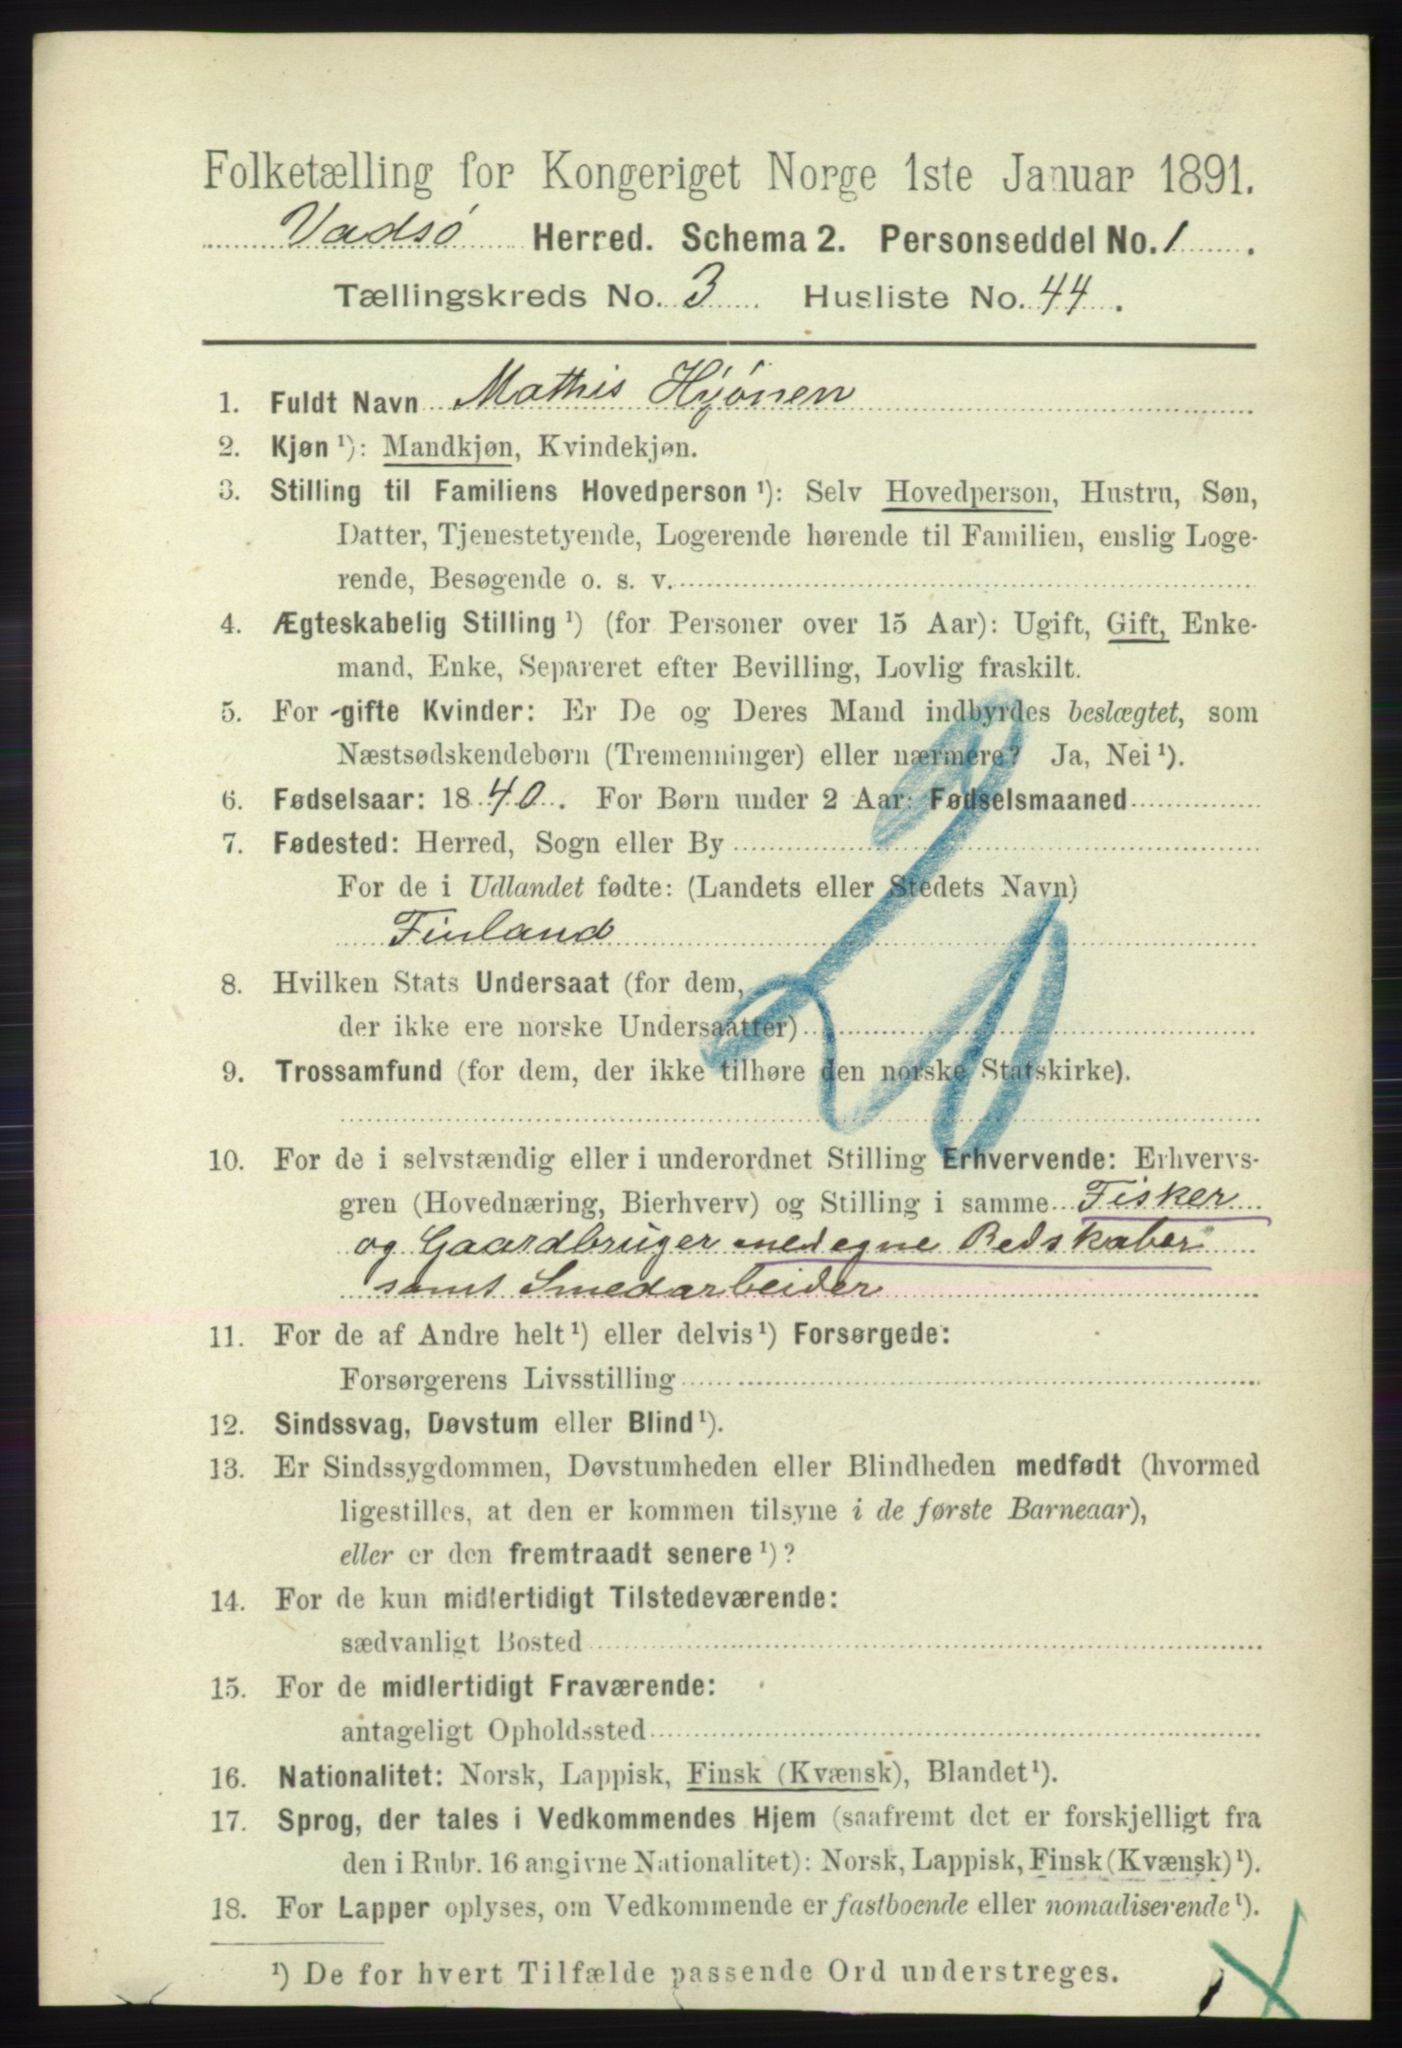 Folketælling for Kongeriget Norge 1ste Januar 1891.
Vadsö Herred. Schema 2. Personseddel No. 1.
Tællingskreds No. 3 Husliste No. 44.
1. Fuldt Navn Mathis Hyönen
2. Kjøn ¹): Mandkjøn, Kvindekjøn.
3. Stilling til Familiens Hovedperson ¹): Selv Hovedperson, Hustru, Søn,
Datter, Tjenestetyende, Logerende hørende til Familien, enslig Loge-
rende, Besøgende o. s. v.
4. Ægteskabelig Stilling ¹) (for Personer over 15 Aar): Ugift, Gift, Enke-
mand, Enke, Separeret efter Bevilling, Lovlig fraskilt.
5. For gifte Kvinder: Er De og Deres Mand indbyrdes beslægtet, som
Næstsødskendebørn (Tremenninger) eller nærmere? Ja, Nei ¹).
6. Fødselsaar: 1840. For Børn under 2 Aar: Fødselsmaaned
7. Fødested: Herred, Sogn eller By
For de i Udlandet fødte: (Landets eller Stedets Navn)
Finland
8. Hvilken Stats Undersaat (for dem,
der ikke ere norske Undersaatter)
9. Trossamfund (for dem, der ikke tilhøre den norske Statskirke).
10. For de i selvstændig eller i underordnet Stilling Erhvervende: Erhvervs-
gren (Hovednæring, Bierhverv) og Stilling i samme Fisker
og Gaardbruger med egne Redskaber
samt Smedarbeider
11. For de af Andre helt ¹) eller delvis ¹) Forsørgede:
Forsørgerens Livsstilling
12. Sindssvag, Døvstum eller Blind ¹).
13. Er Sindssygdommen, Døvstumheden eller Blindheden medfødt (hvormed
ligestilles, at den er kommen tilsyne i de første Barneaar),
eller er den fremtraadt senere ¹)?
14. For de kun midlertidigt Tilstedeværende:
sædvanligt Bosted
15. For de midlertidigt Fraværende:
antageligt Opholdssted
16. Nationalitet: Norsk, Lappisk, Finsk (Kvænsk), Blandet ¹).
17. Sprog, der tales i Vedkommendes Hjem (saafremt det er forskjelligt fra
den i Rubr. 16 angivne Nationalitet): Norsk, Lappisk, Finsk (Kvænsk) ¹).
18. For Lapper oplyses, om Vedkommende er fastboende eller nomadiserende ¹).
¹) De for hvert Tilfælde passende Ord understreges.